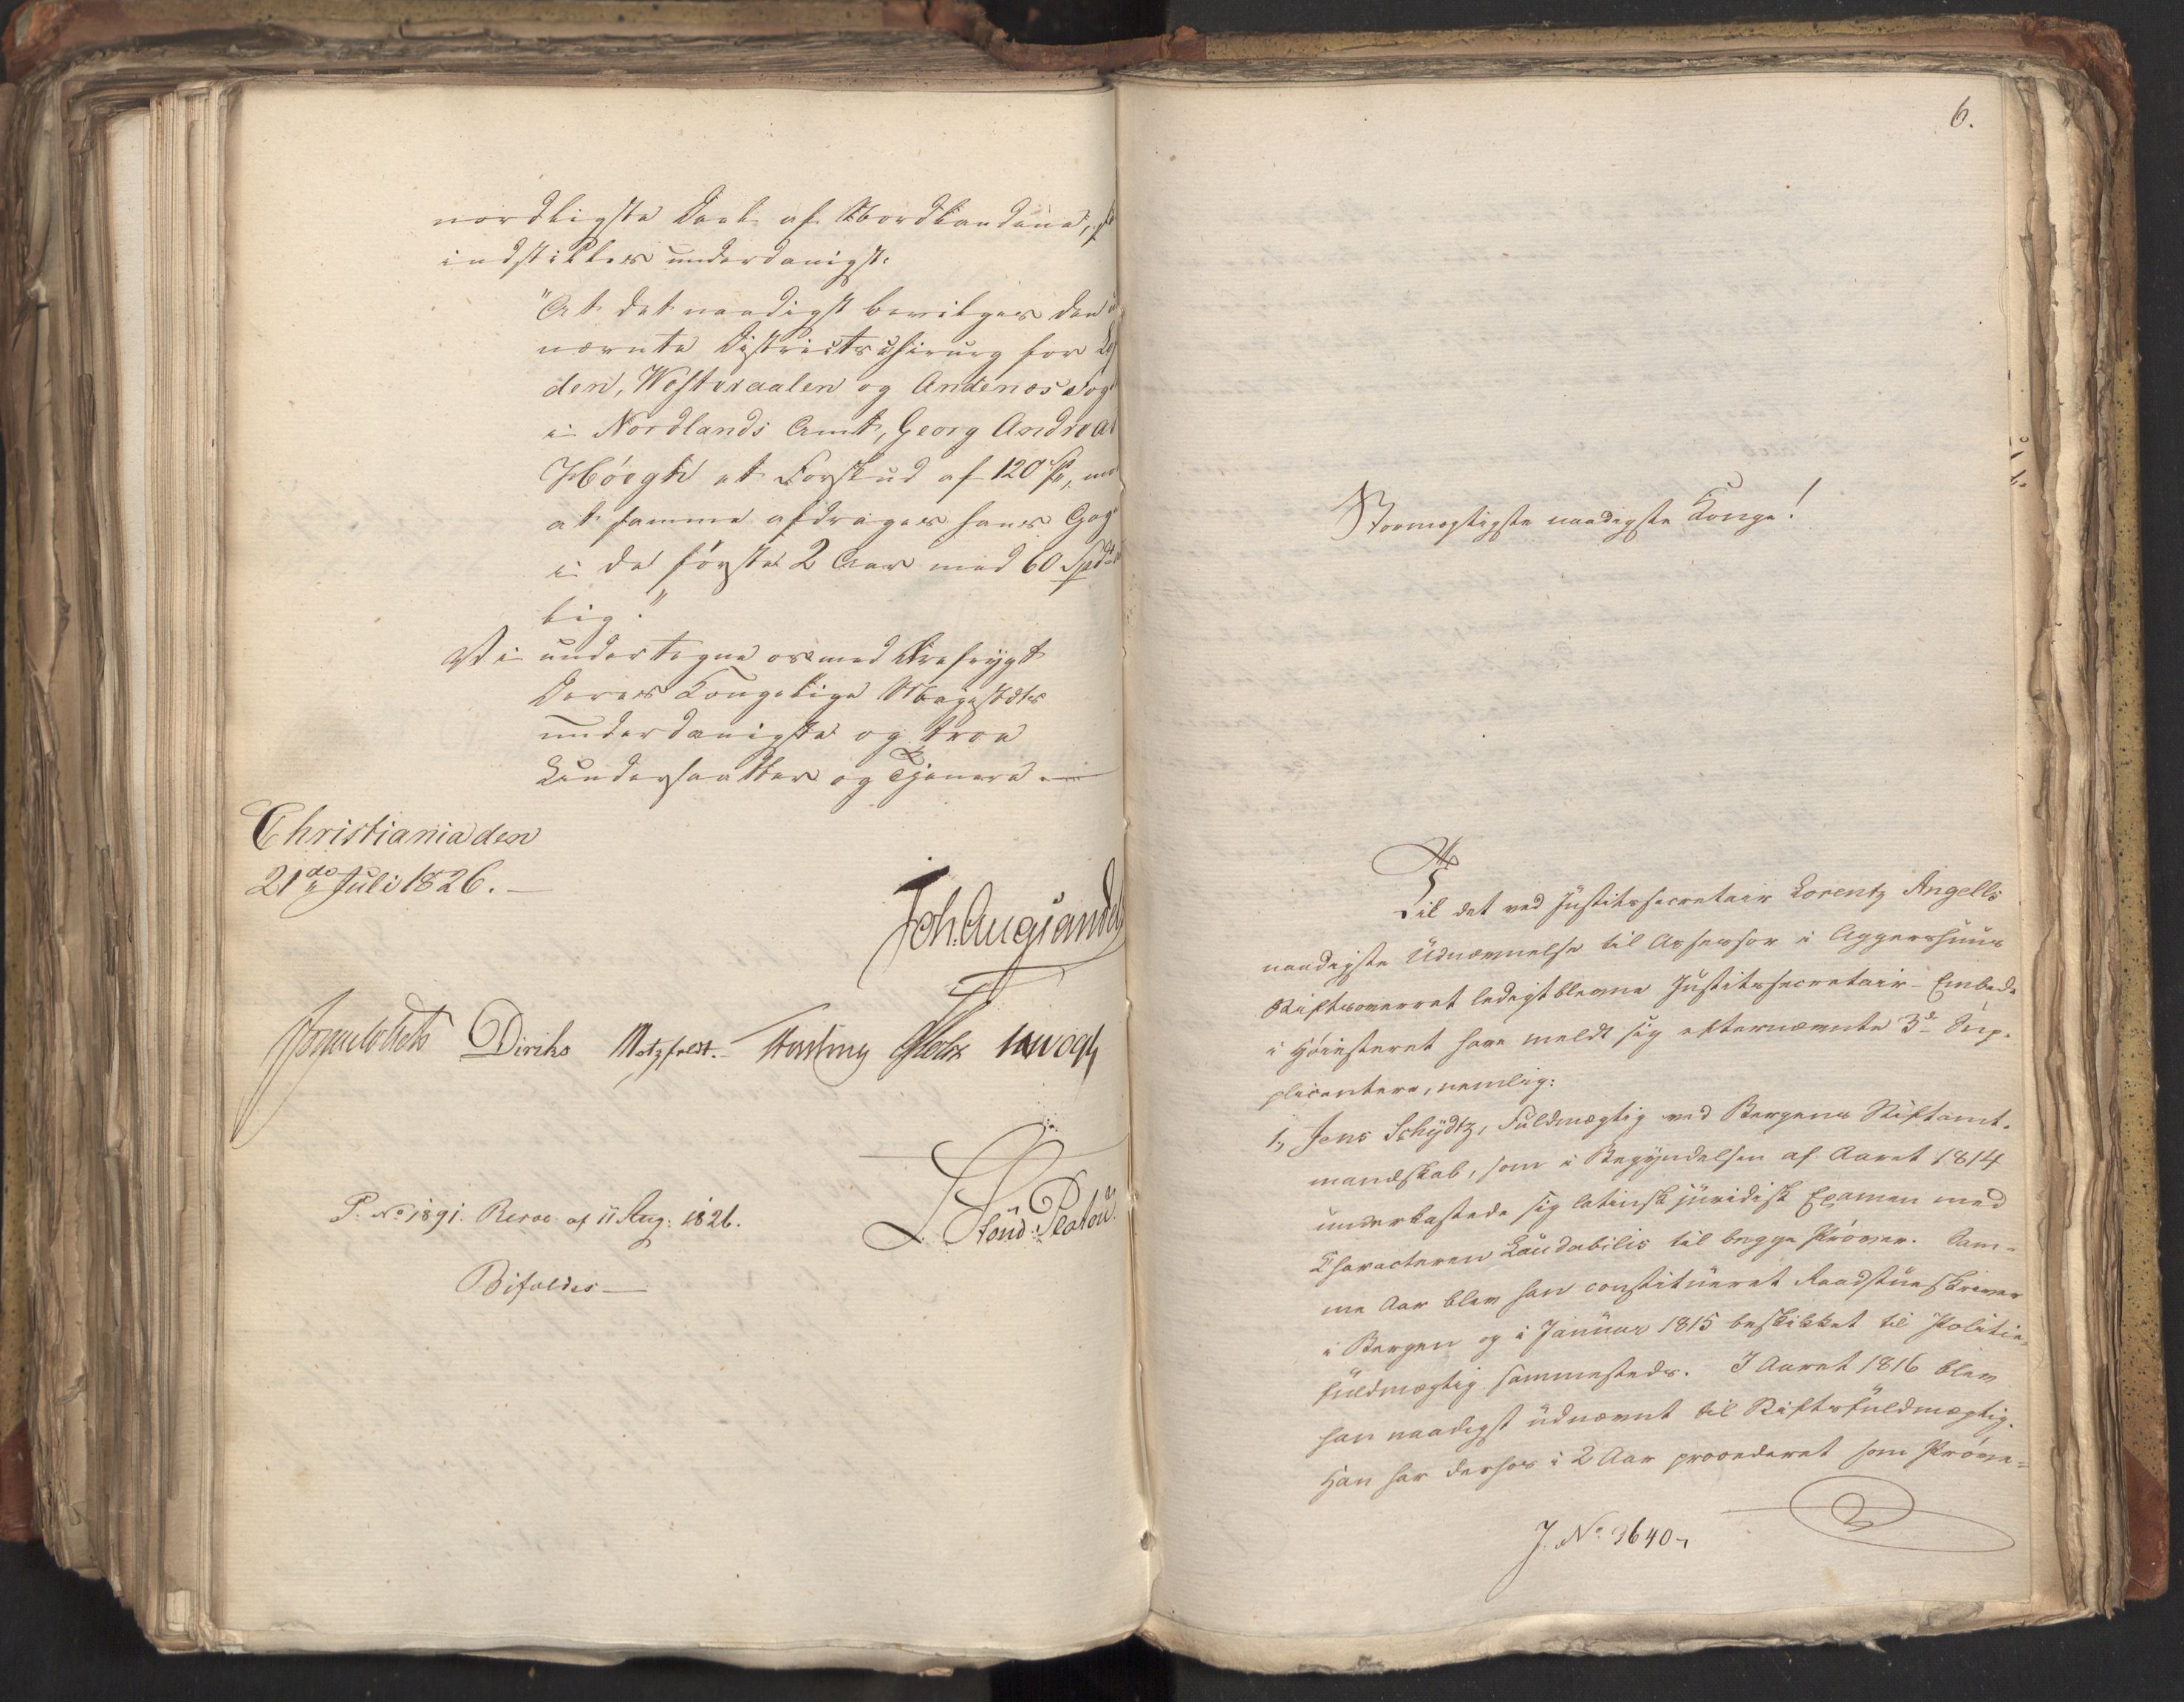 nordligste Deel af Nordlandene,
indstilles underdanigst:
"At det naadigst bevilges den
nævnte Districtschirurg for
den, Westeraalen og Andenæs
i Nordlands Amt, Georg Andreas
Höegh et Forskud af 120 Spd, mod
at samme afdrages hans Gage
i de første 2 Aar med 60 Spd
lig."
Vi undertegne os med Ærefrygt
Deres Kongelige Majestæts
underdanigste og troe
Undersaatter og Tjenere.
Christiania den
21de Juli 1826.
Joh. Aug. Sandels
Sommerhielm Diriks Motzfeldt. Fasting Holst Krogh
L. Stoud Platou
P. No 1891. Resol. af 11 Aug: 1826.
Bifaldes
6.
Stormægtigste naadigste Konge!
Til det ved Justitssecretair Lorentz Angells
naadigste Udnævnelse til Assessor i Aggershuus
Stiftsoverret ledigtblevne Justitssecretair-Embede
i Høiesteret have meldt sig efternævnte 3de Sup-
plicantere, nemlig:
1., Jens Schydtz, Fuldmægtig ved Bergens Stiftamt-
mandskab, som i Begyndelsen af Aaret 1814
underkastede sig latinsk juridisk Examen med
Characteren Laudabilis til begge Prøver. Sam-
me Aar blev han constitueret Raadstueskriver
i Bergen og i Januar 1815 beskikket til Politie-
fuldmægtig sammesteds. I Aaret 1816 blev
han naadigst udnævnt til Stiftsfuldmægtig.
Han har derhos i 2 Aar procederet som Prøve-
J. No 3640